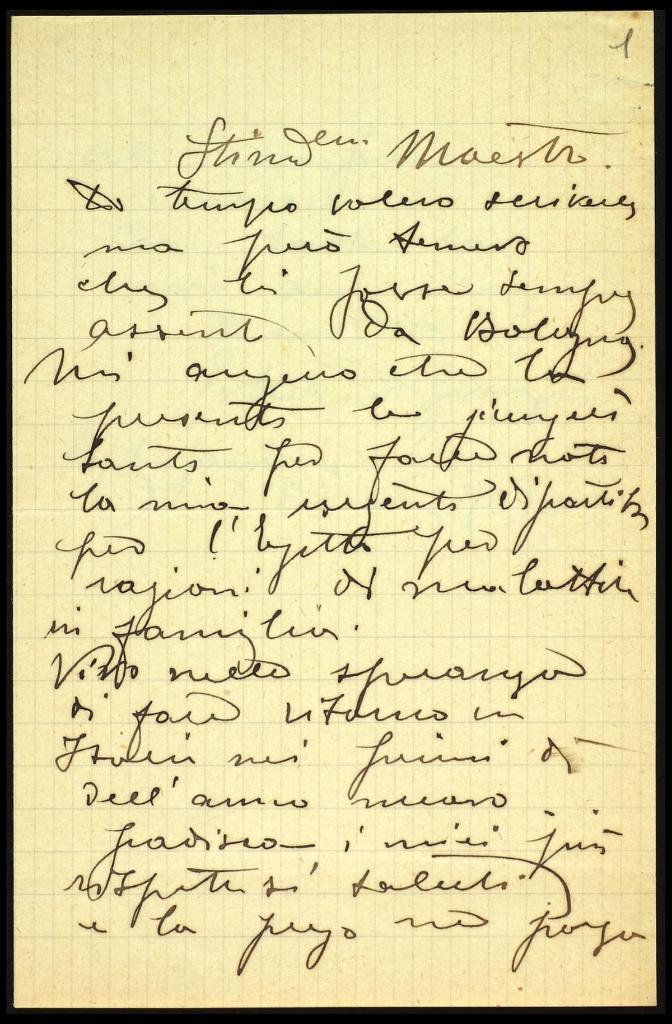 1
Stimdem Maestro.
Da tempo volevo scriverle
ma però temevo
che lei fosse sempre
assente da Bologna.
Mi auguro che la
presente la
tanto per farle noto
la mia dipartita
per l'Egitto per
ragioni di malattia
in famiglia.
Vivo nella speranza
di fare ritorno in
Italia nei primi di
dell'anno nuovo
gradisca i miei più
rispettosi saluti
e la prego ne porga